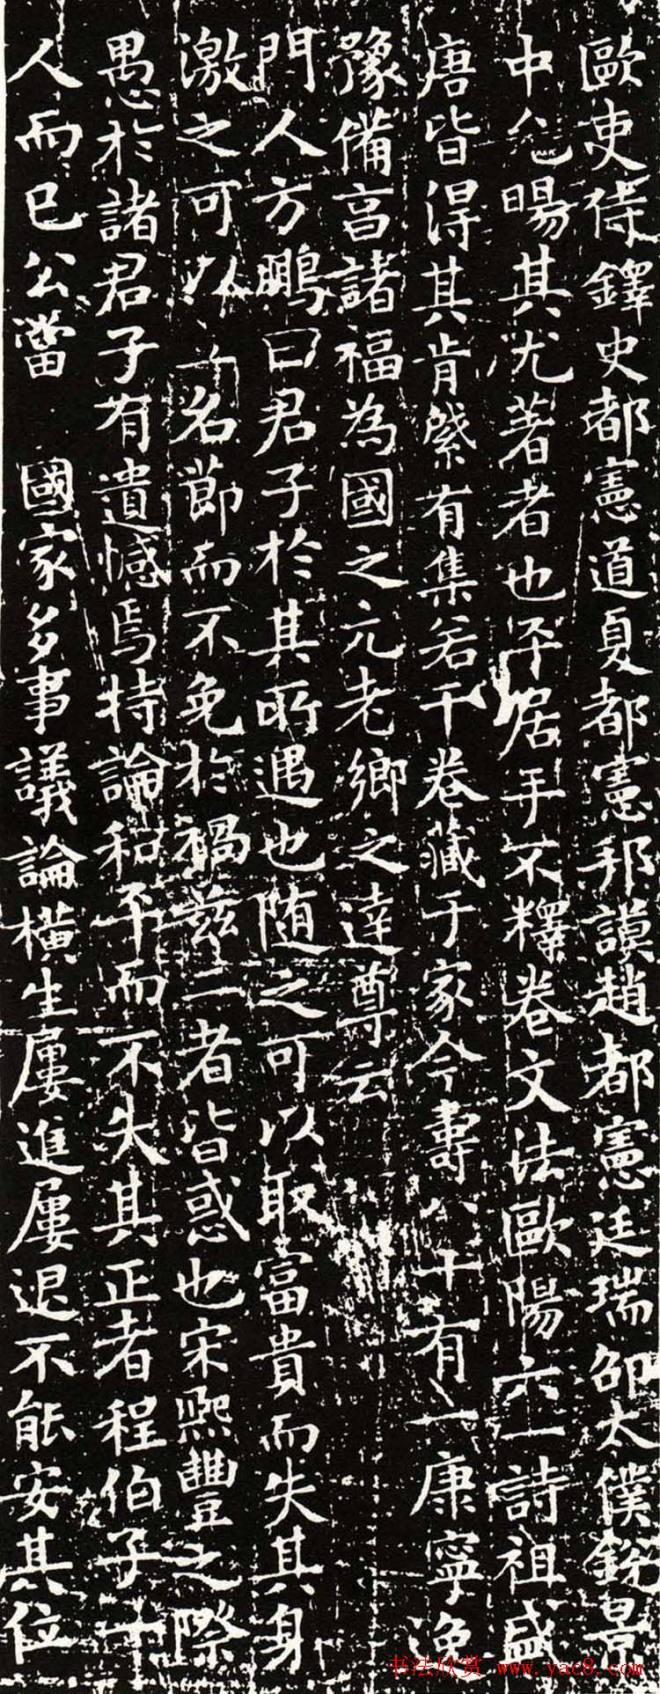 歐吏侍鐸史都憲道夏都憲邦謨趙都憲廷瑞邵太僕銳
中暘其尤著者也平居手不釋卷文法歐陽六一詩祖盛
唐皆得其肯綮有集若干卷藏于家今壽八十有一康寧逸
豫備言諸福為國之元老鄉之達尊云
門人方鵬曰君子於其所遇也随之可以取富貴而失其身
激之可以名節而不免於禍兹二者皆惑也宋熙豐之際
愚於諸君子有遺憾焉持論和平而不失其正者程伯子一
人而已公當 國家多事議論橫生屢進屢退不能安其位
书法欣赏 www.yac8.com